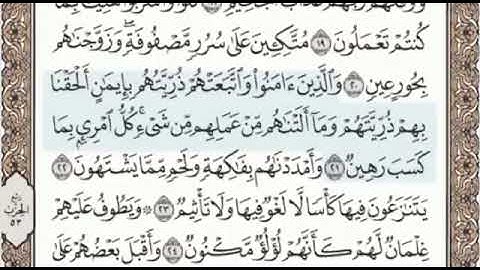 كُنتُمْ تَعْمَلُونَ ١٩ مُتَّكِـِٔينَ عَلَىٰ سُرُرٍ مَّصْفُوفَةٍ ۖ وَزَوَّجْنَٰهُم
بِحُورٍ عِينٍ ٢٠ وَٱلَّذِينَ ءَامَنُوا۟ وَٱتَّبَعَتْهُمْ ذُرِّيَّتُهُم بِإِيمَٰنٍ أَلْحَقْنَا
بِهِمْ ذُرِّيَّتَهُمْ وَمَآ أَلَتْنَٰهُم مِّنْ عَمَلِهِم مِّن شَىْءٍ ۚ كُلُّ ٱمْرِئٍۭ بِمَا
كَسَبَ رَهِينٌ ٢١ وَأَمْدَدْنَٰهُم بِفَٰكِهَةٍ وَلَحْمٍ مِّمَّا يَشْتَهُونَ ٢٢
يَتَنَٰزَعُونَ فِيهَا كَأْسًا لَّا لَغْوٌ فِيهَا وَلَا تَأْثِيمٌ ٢٣ ۞ وَيَطُوفُ عَلَيْهِمْ
غِلْمَانٌ لَّهُمْ كَأَنَّهُمْ لُؤْلُؤٌ مَّكْنُونٌ ٢٤ وَأَقْبَلَ بَعْضُهُمْ عَلَىٰ
ربع
الحزب
٥٣